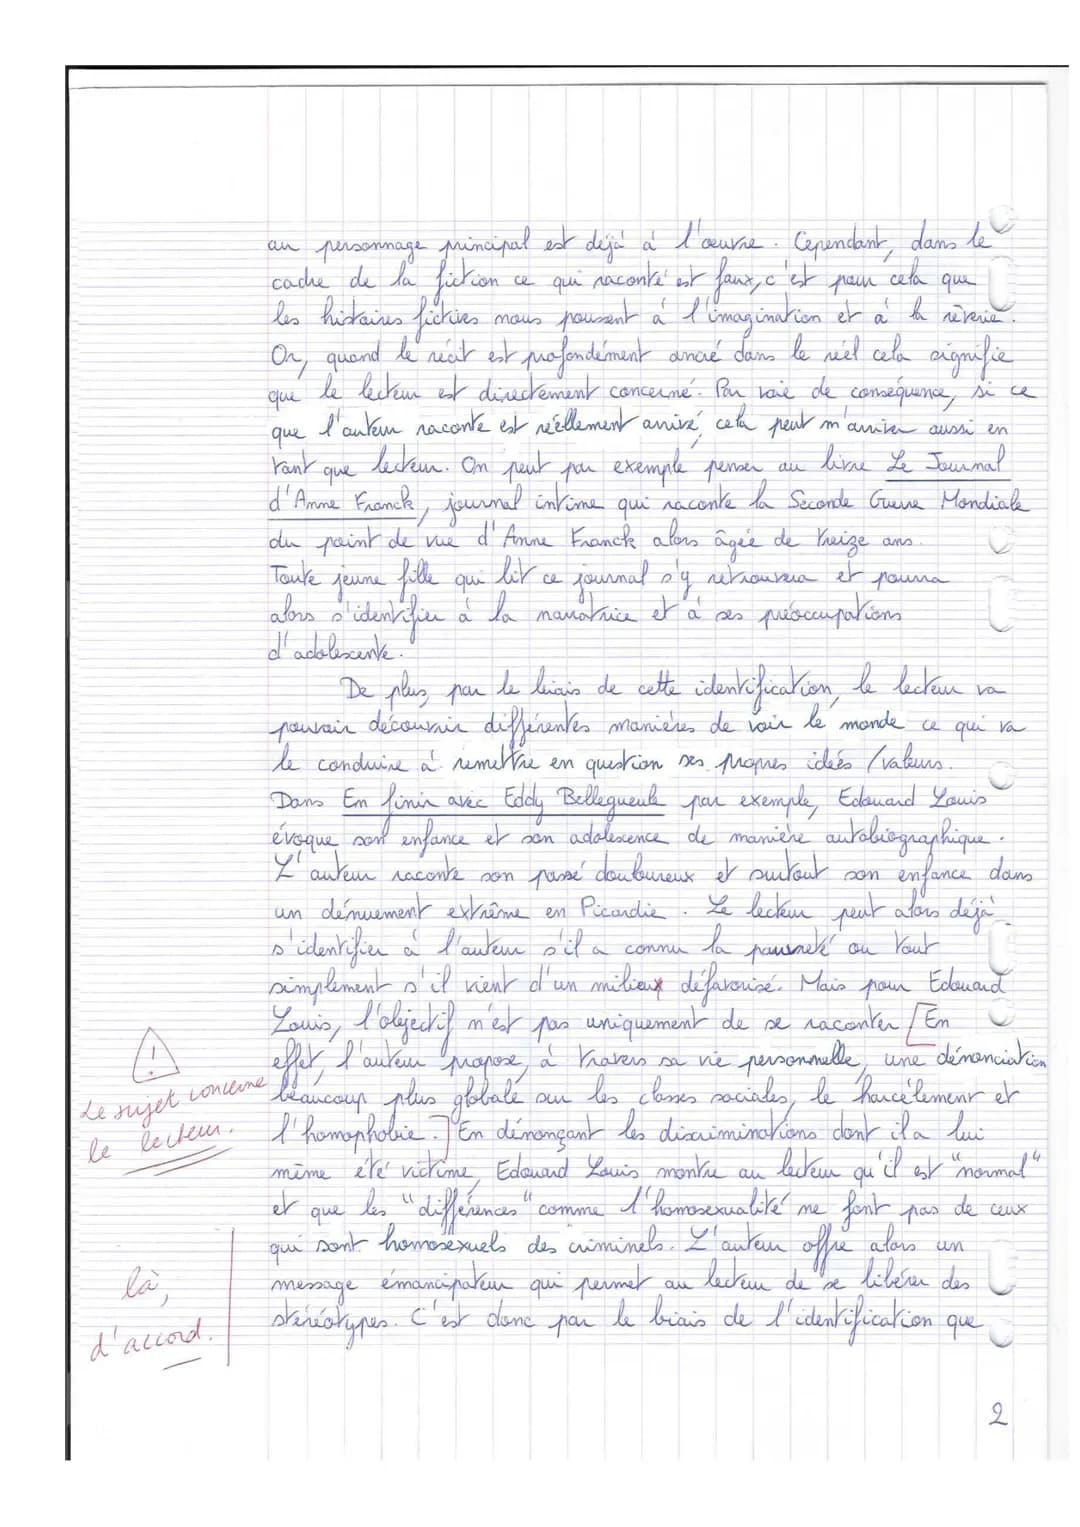 au personnage principal est déjà à l'œuvre. Cependant, dans le
cadre de la fiction ce qui raconté est faux, c'est pour cela que
les histoires fictives nous poussent à l'imagination et à la rêverie.
Or, quand le récit est profondément ancré dans le réel cela signifie
que le lecteur est directement concerné. Par voie de conséquence, si ce
que l'auteur raconte est réellement arrivé, cela peut m'arriver aussi en
tant que lecteur. On peut par exemple penser au livre Le Journal
d'Anne Franck, journal intime qui raconte la Seconde Guerre Mondiale
du point de vue d'Anne Franck alors âgée de treize ans.
Toute jeune fille qui lit ce journal s'y retrouvera et pourra
alors s'identifier à la narratrice et à ses préoccupations
d'adolescente.
De plus, par le biais de cette identification, le lecteur va
pouvoir découvrir différentes manières de voir le monde ce qui va
le conduire à remettre en question ses propres idées / valeurs.
Dans En finir avec Eddy Bellegueule par exemple, Edouard Louis
évoque son enfance et son adolescence de manière autobiographique.
L'auteur raconte son passé douloureux et surtout son enfance dans
un dénuement extrême en Picardie. Le lecteur peut alors déjà
s'identifier à l'auteur s'il a connu la pauvreté ou tout
simplement s'il vient d'un milieux défavorisé. Mais pour Edouard
Louis, l'objectif n'est pas uniquement de se raconter [En
effet, l'auteur propose, à travers sa vie personnelle, une dénonciation
beaucoup plus globale sur les classes sociales, le harcèlement et
l'homophobie.] En dénonçant les discriminations dont il a lui
même été victime, Edouard Louis montre au lecteur qu'il est "normal"
et que les "différences" comme l'homosexualité ne font pas de ceux
qui sont homosexuels des criminels. L'auteur offre alors un
message émancipateur qui permet au lecteur de se libérer des
stéréotypes. C'est donc par le biais de l'identification que
!
Le sujet concerne
le lecteur.
là,
d'accord.
2